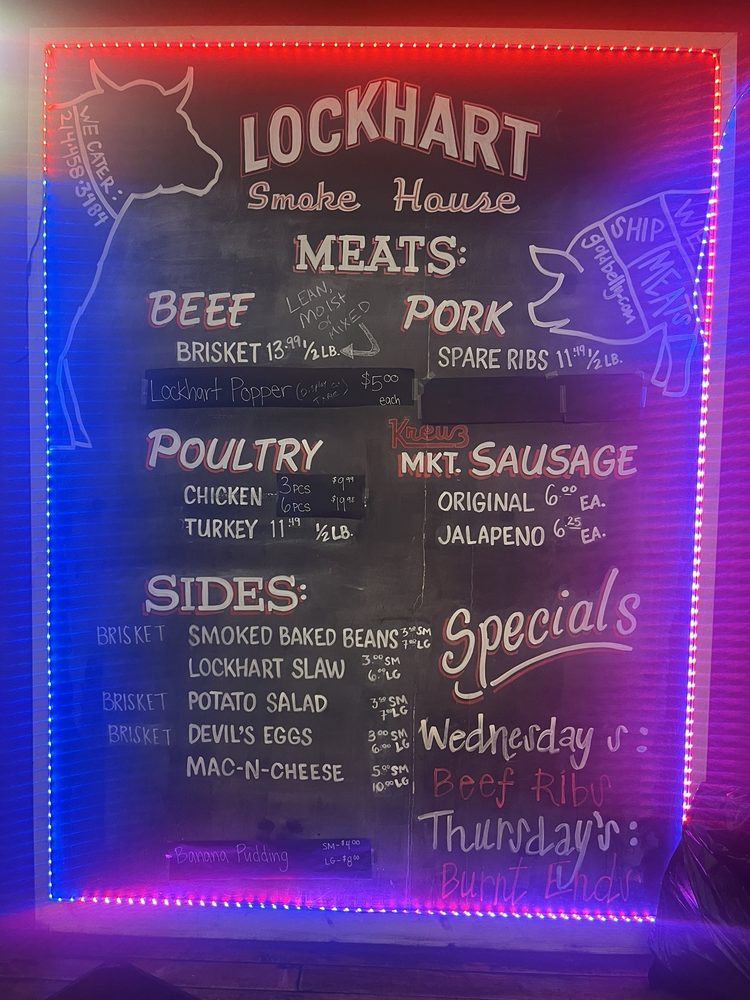 LOCKHART
Smoke House
WE CATER:
214.458.3484
WE
SHIP
MEATS
goldbelly.com
MEATS:
BEEF
LEAN,
MOIST
or
MIXED
BRISKET 13.99 1/2 LB.
Lockhart Popper $5.00
each
PORK
SPARE RIBS 11.49 1/2 LB.
POULTRY
CHICKEN 3 PCS $9.99
6 PCS $19.98
TURKEY 11.49 1/2 LB.
Kreuz
MKT. SAUSAGE
ORIGINAL 6.00 EA.
JALAPENO 6.25 EA.
SIDES:
BRISKET SMOKED BAKED BEANS SM
LG
LOCKHART SLAW 3.00 SM
6.00 LG
BRISKET POTATO SALAD SM
LG
BRISKET DEVIL'S EGGS 3.00 SM
6.00 LG
MAC-N-CHEESE 5.00 SM
10.00 LG
Banana Pudding SM-$4.00
LG-$8.00
Specials
Wednesday's:
Beef Ribs
Thursday's:
Burnt Ends